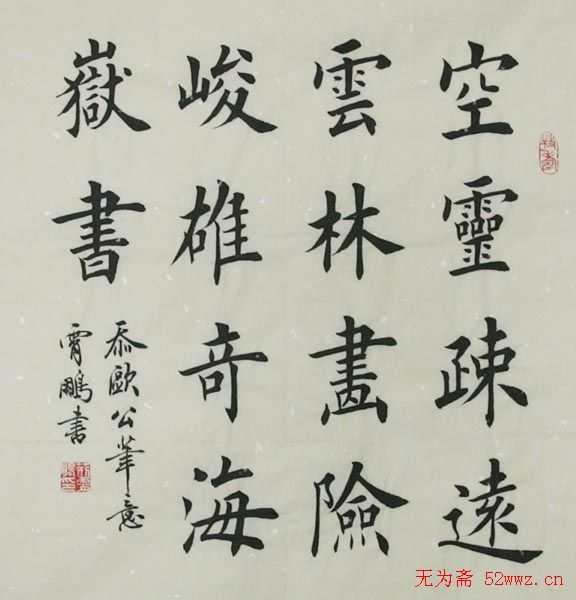 空靈疎遠
雲林畫險
峻雄奇海
嶽書
忝歐公筆意
霄鵬書
无为斋 52wwz.cn